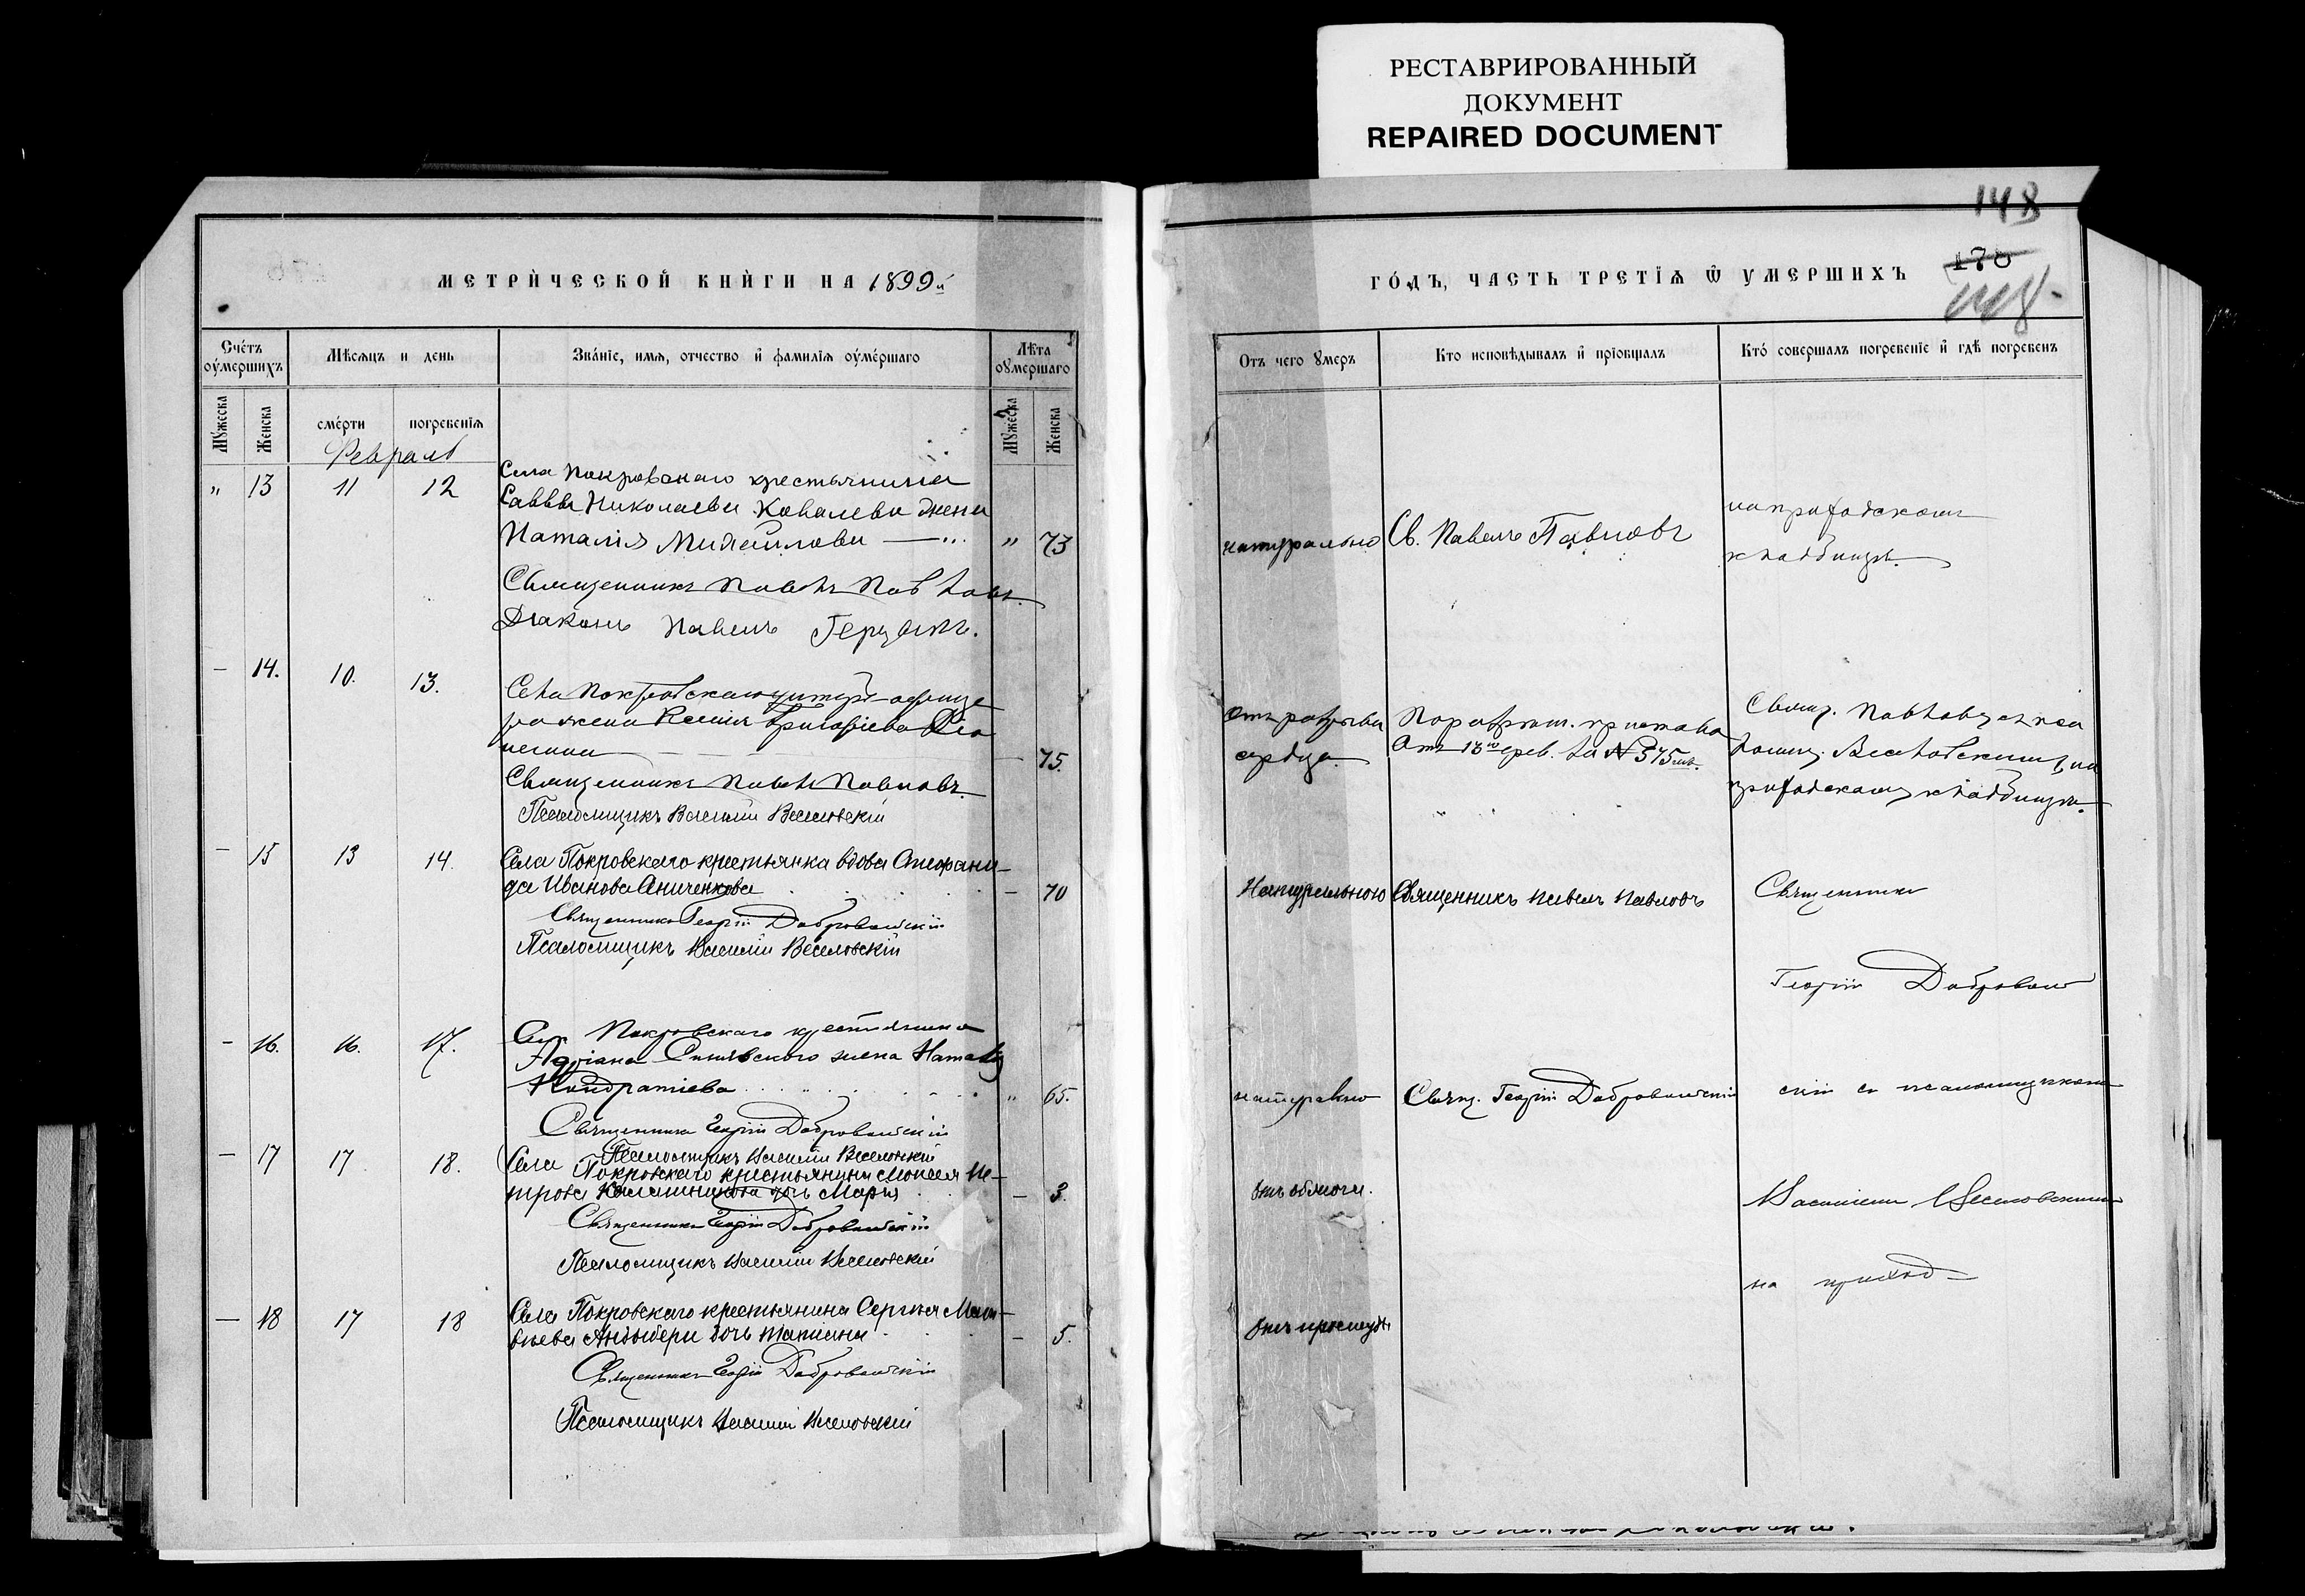 РЕСТАВРИРОВАННЫЙ
ДОКУМЕНТ
REPAIRED DOCUMENT
148
МЕТРИ́ЧЕСКОЙ КНИ́ГИ НА 1899й
ГО́ДЪ, ЧАСТЬ ТРЕТІѦ Ѿ УМЕРШИХЪ
178
148
Сче́тъ оу́мершихъ
Мѣсѧцъ и день
Зва́ніе, имѧ, отчество и҆ фамиліѧ оуме́ршаго
Лѣта оумершаго
Му́жеска
Женска
сме́рти
погребеніѧ
Му́жеска
Женска
Отъ чего ꙋмеръ
Кто исповѣдывалъ и҆ прїобщалъ
Кто́ совершалъ погребенїе и҆ гдѣ погребенъ
Февраль
" 13 11 12
Села Покровскаго крестьянина
Саввы Николаева Ковалева жена
Наталія Михаилова " 73
Священникъ Павелъ Павловъ.
Діаконъ Павелъ
натурально
Св. Павелъ Павловъ
на приходскомъ
кладбищѣ.
— 14. 10. 13.
Села Покровскаго унтеръ-офице
ра жена Ксенія Григорьева
— 75.
Священникъ Павелъ Павловъ.
Псаломщикъ Василій Веселовскій
отъ разрыва
сердца.
пристава
Отъ 13го фев. за № 575мъ.
Свящ. Павловъ съ пса
ломщ. Веселовскимъ, на
приходскомъ кладбищѣ.
— 15 13 14.
Села Покровскаго крестьянка вдова Стефани-
да Иванова Аниченкова — 70
Священникъ Георгій Добровольскій
Псаломщикъ Василій Веселовскій
Натуральною
Священникъ Павелъ Павловъ
Священникъ
Георгій Доброволь
— 16. 16. 17.
Покровскаго крестьянина
Адріана жена Наталія
Кондратіева " 65.
Священникъ Георгій Добровольскій
Псаломщикъ Василій Веселовскій
натурально
Свящ. Георгій Добровольскій
скій съ псаломщикомъ
— 17 17 18.
Села Покровскаго крестьянина Моисея Пе-
трова Калашникова дочь Марія — 3.
Священникъ Георгій Добровольскій
Псаломщикъ Василій Веселовскій
Василіемъ Веселовскимъ
на приход
— 18 17 18
Села Покровскаго крестьянина Сергѣя Мат-
вѣева дочь Татіана — 5.
Священникъ Георгій Добровольскій
Псаломщикъ Василій Веселовскій
Отъ простуды